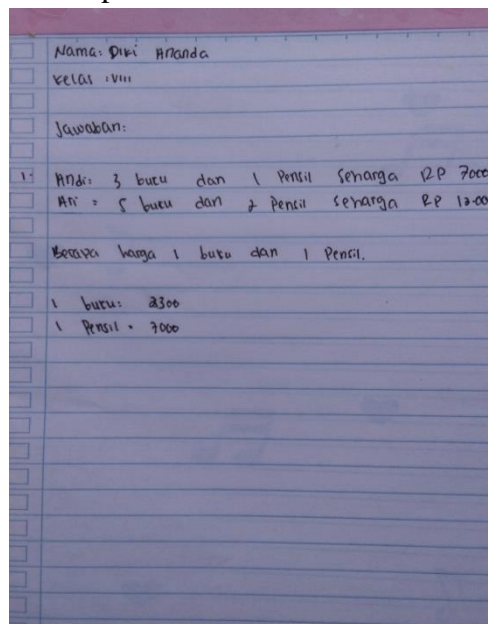 Nama: Diki Ananda
Kelas : VIII
Jawaban:
1. Andi: 3 buku dan 1 Pensil seharga RP 7000
Ari = 5 buku dan 2 Pensil seharga RP 12.00
Berapa harga 1 buku dan 1 Pensil.
1 buku: 2300
1 Pensil = 7000